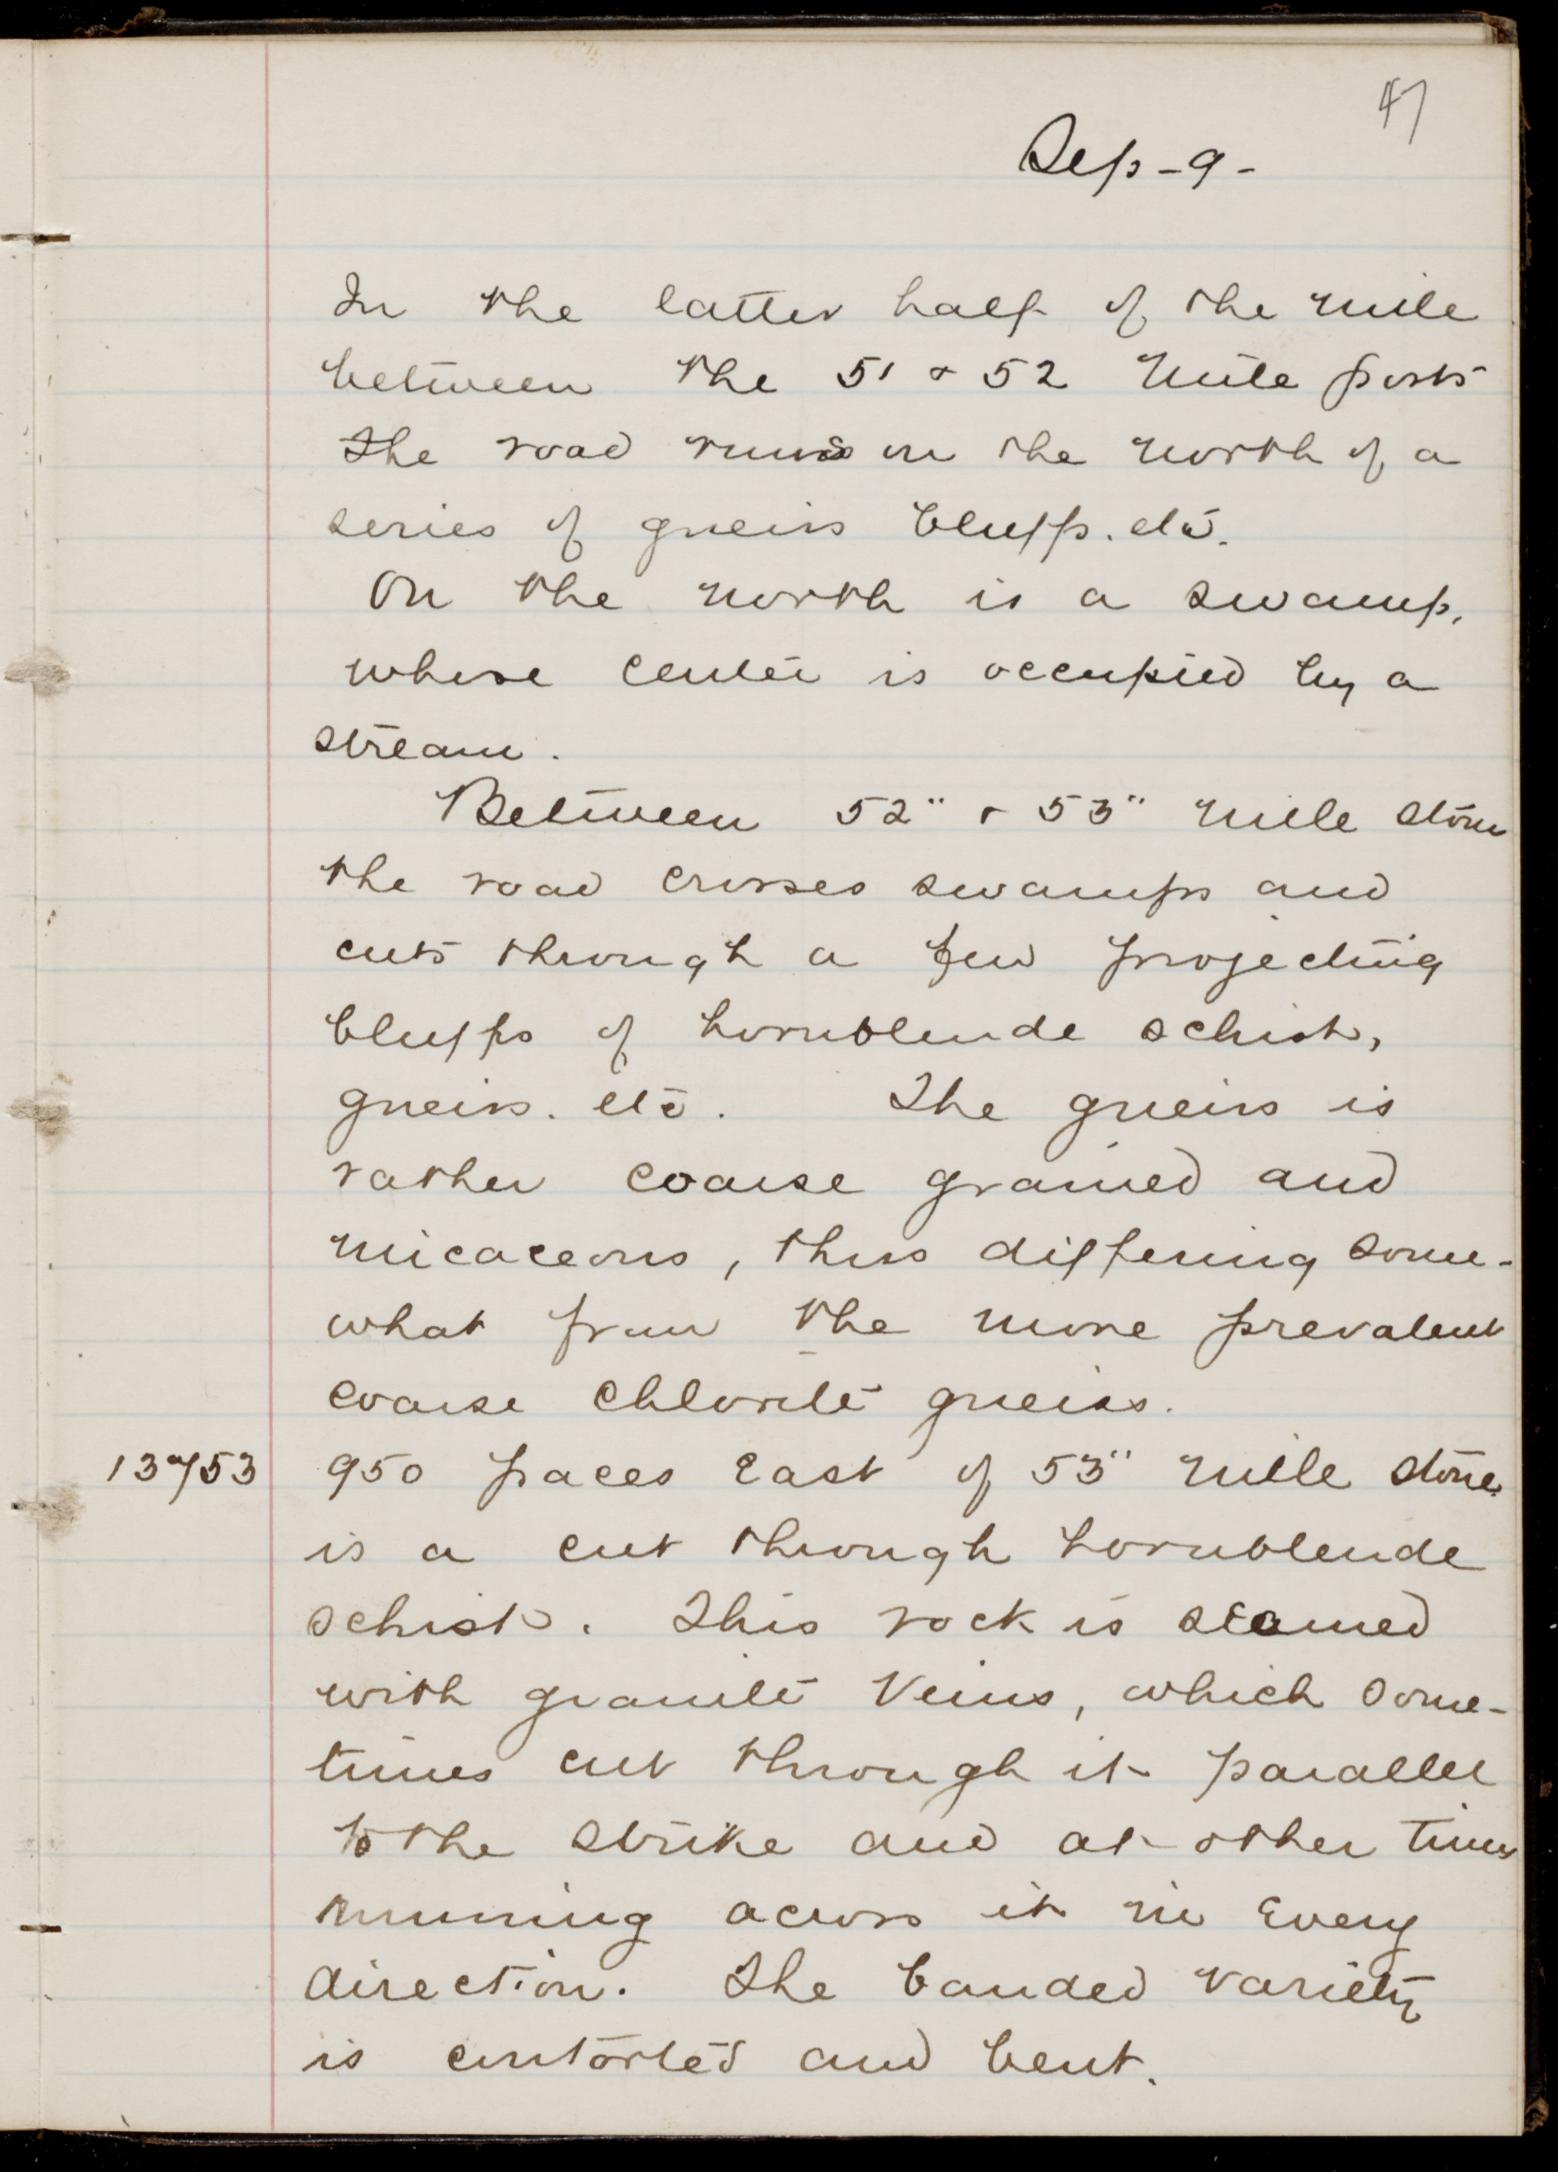 47
Sep - 9 -
In the latter half of the mile
between the 51 & 52 mile posts
the road runs on the north of a
series of gneiss bluffs. etc.
On the north is a swamp,
whose center is occupied by a
stream.
Between 52" & 53" mile stone
the road crosses swamps and
cuts through a few projecting
bluffs of hornblende schist,
gneiss. etc. The gneiss is
rather coarse grained and
micaceous, thus differing some-
what from the more prevalent
coarse chlorite gneiss.
13753 950 paces East of 53" mile stone
is a cut through hornblende
schist. This rock is seamed
with granite veins, which some-
times cut through it parallel
to the strike and at other times
running across it in every
direction. The banded variety
is contorted and bent.